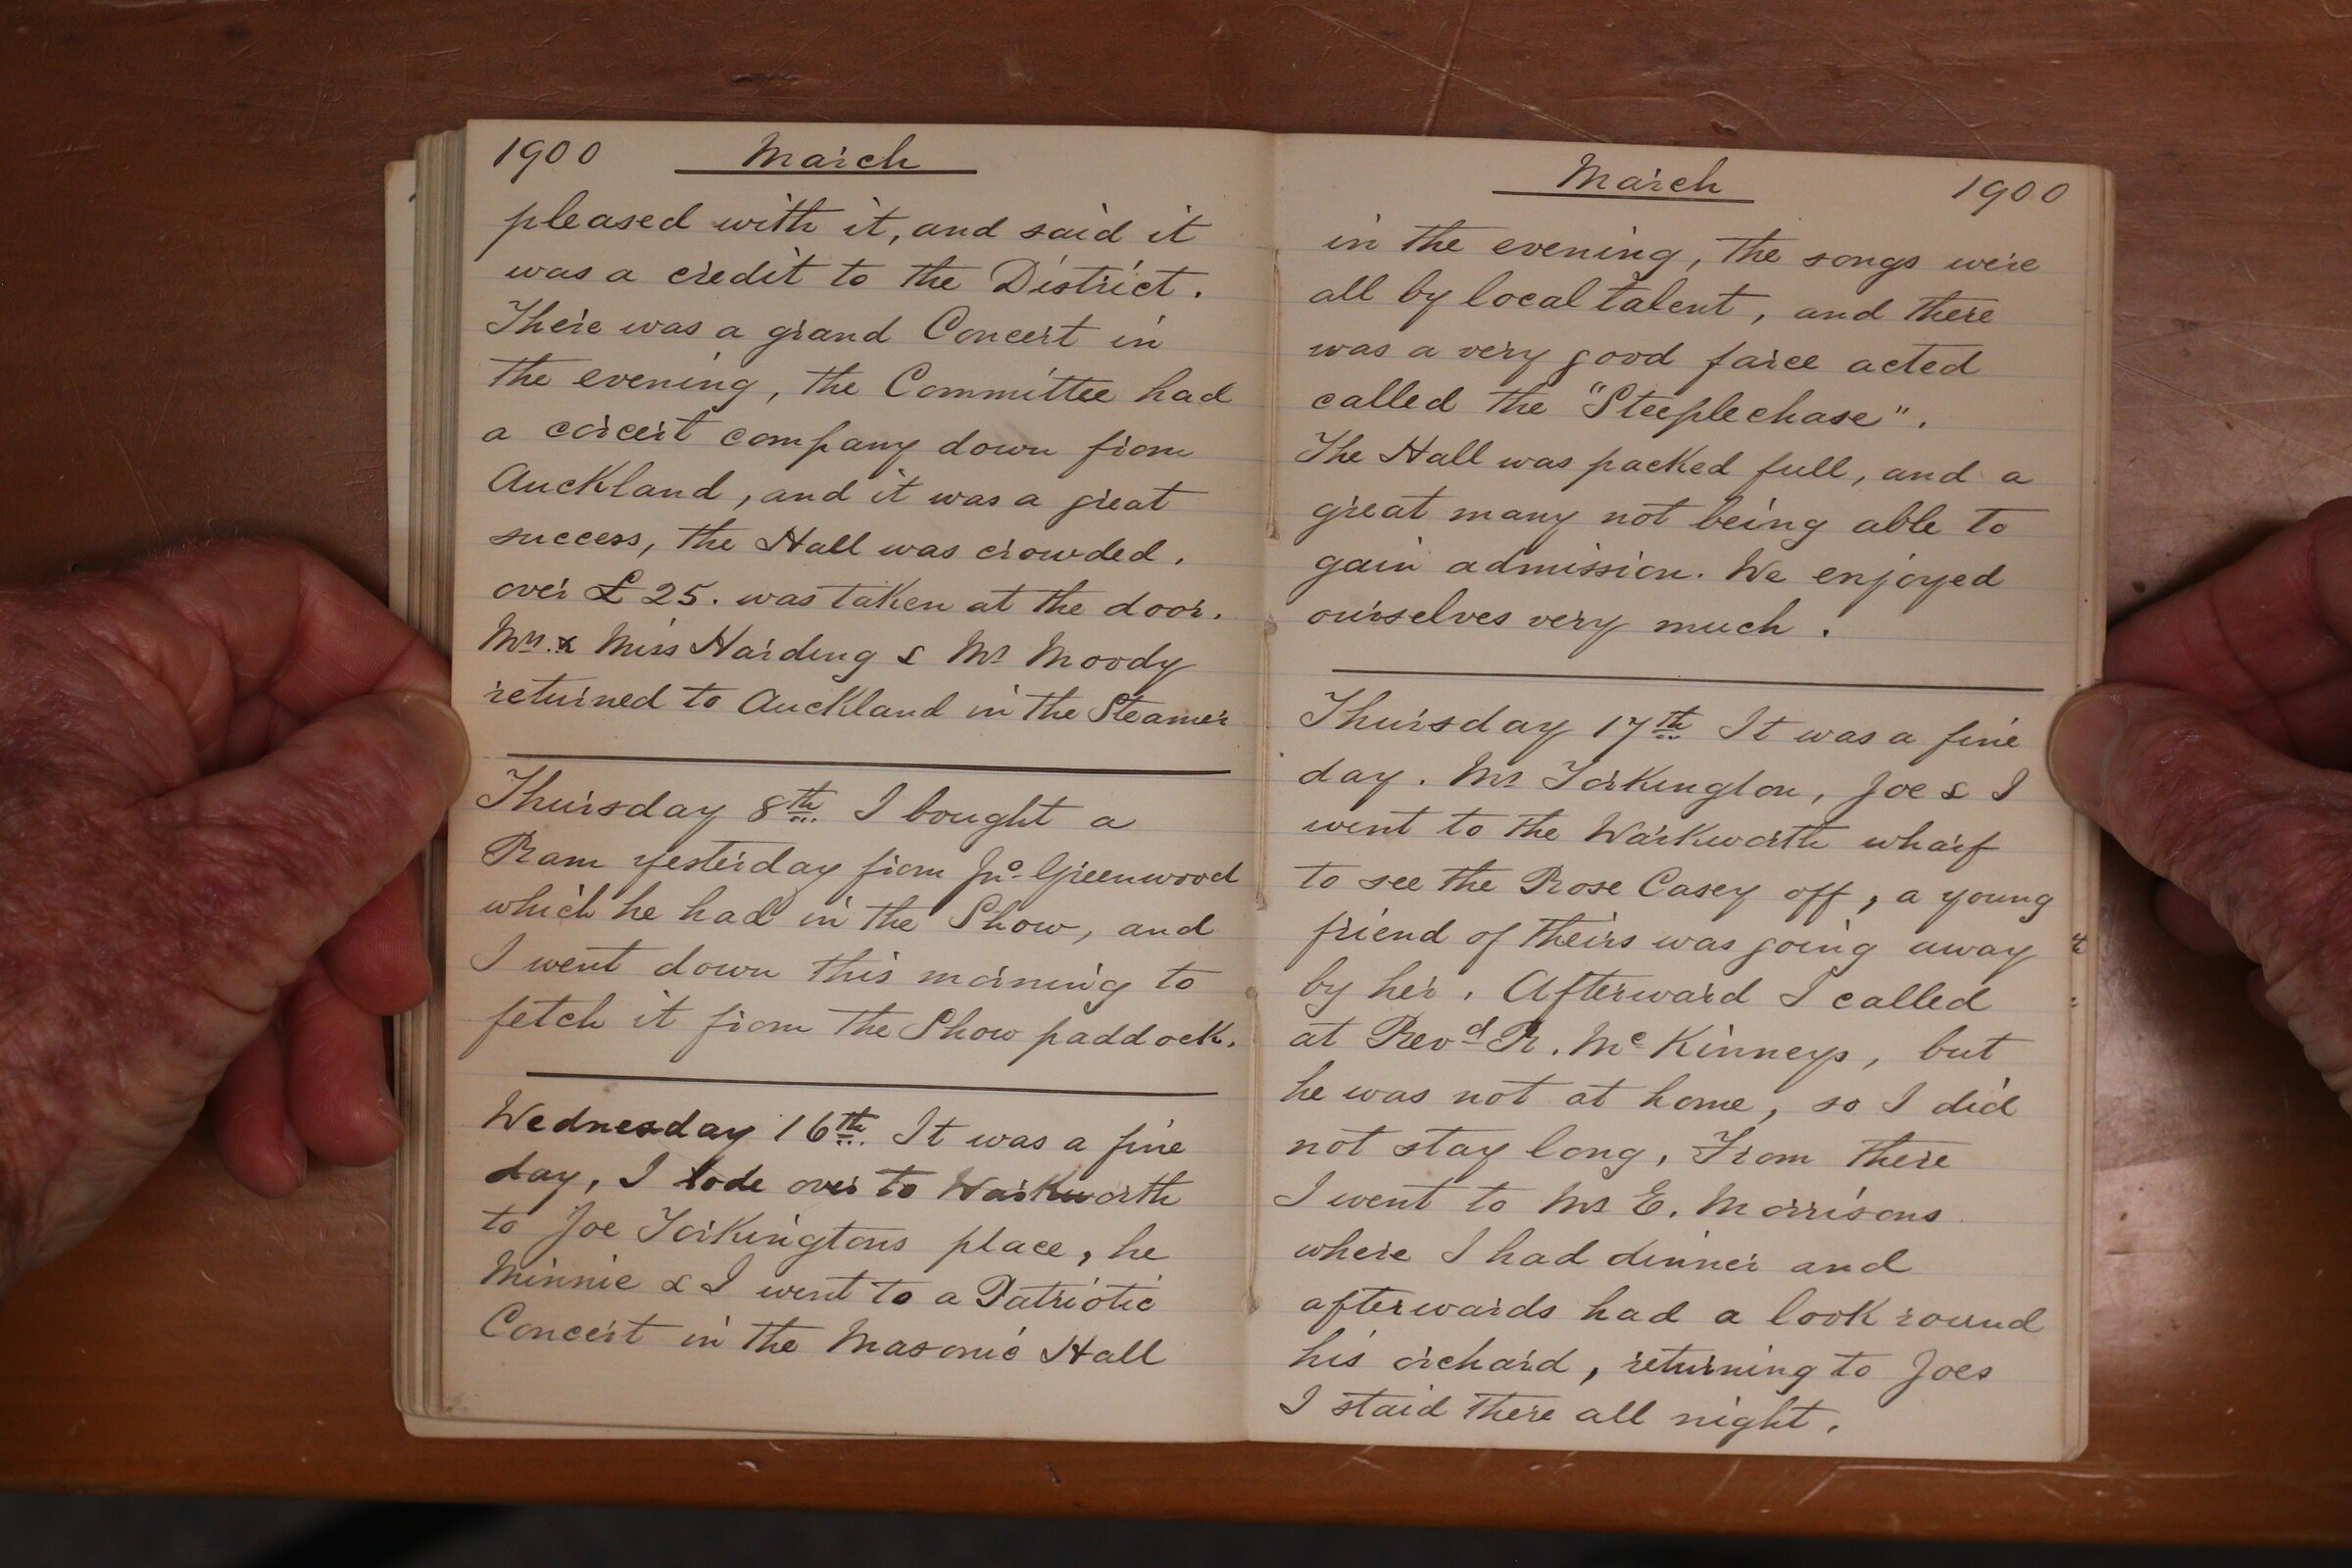 1900 March
pleased with it, and said it
was a credit to the District.
There was a grand Concert in
the evening, the Committee had
a corcert company down from
Auckland, and it was a great
success, the Hall was crowded.
over £25. was taken at the door.
Mrs. & Miss Harding & Mr Moody
returned to Auckland in the Steamer
Thursday 8th. I bought a
Ram yesterday from Jno. Greenwood
which he had in the Show, and
I went down this morning to
fetch it from the Show paddock.
Wednesday 16th. It was a fine
day, I rode over to Warkworth
to Joe Torkingtons place, he
Minnie & I went to a Patriotic
Concert in the Masonic Hall
March 1900
in the evening, the songs were
all by local talent, and there
was a very good farce acted
called the "Steeplechase".
The Hall was packed full, and a
great many not being able to
gain admission. We enjoyed
ourselves very much.
Thursday 17th It was a fine
day. Mr Torkington, Joe & I
went to the Warkworth wharf
to see the Rose Casey off, a young
friend of theirs was going away
by her. Afterward I called
at Revd R. McKinneys, but
he was not at home, so I did
not stay long, From there
I went to Mr E. Morrisons
where I had dinner and
afterwards had a look round
his orchard, returning to Joes
I staid there all night.